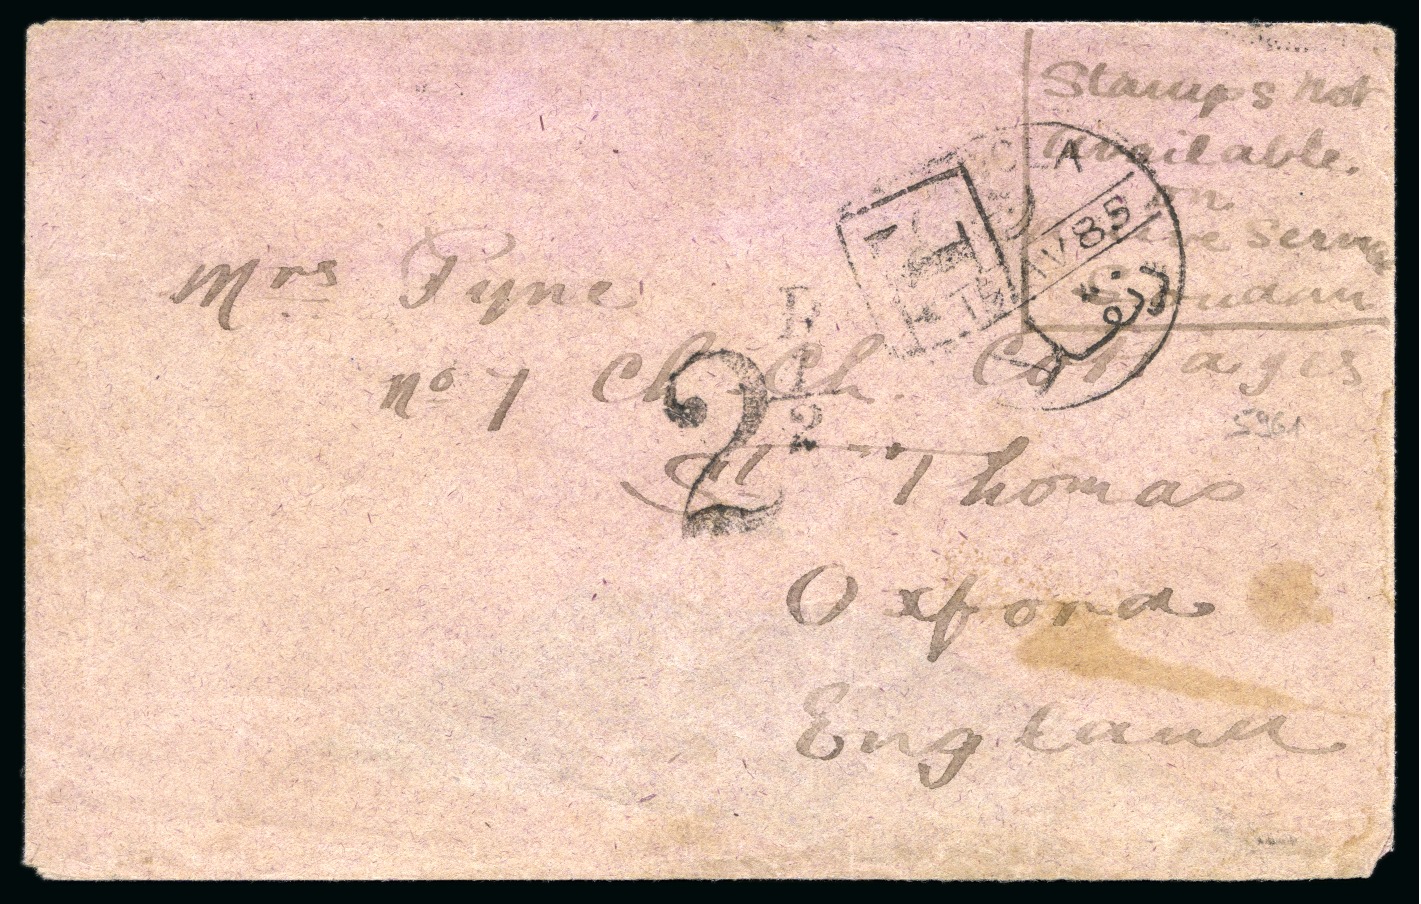 Stamps not
available.
on
Active Service
Soudan
15 AV 85
T
Mrs Pyne
No 7 Ch. Ch. Cottages
St Thomas
Oxford
England
2
1/2
5961